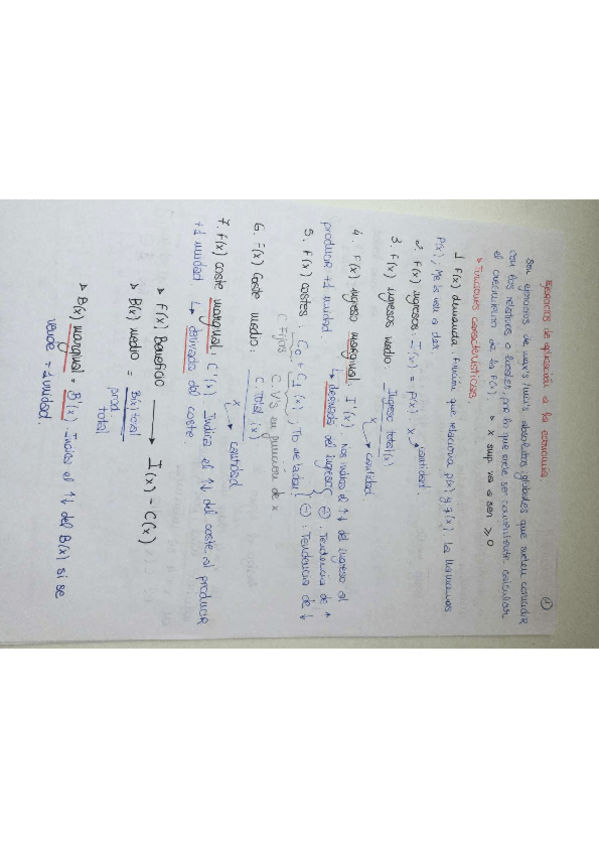 1
Ejercicios de aplicación a la economía.
Son ejercicios de máx's/mín's absolutos globales que suelen coincidir
con los relativos o locales, por lo que suele ser conveniente calcular
el crecimiento de la f(x). → x siemp va a ser ≥ 0
→ Funciones características.
1 F(x) demanda: Función que relaciona p(x) y q(x). La llamamos
P(x), Me la van a dar.
2. F(x) ingresos: I(x) = p(x) · x → cantidad.
3. F(x) ingresos medio: Ingreso total(x)
x → cantidad
4. F(x) ingreso marginal: I'(x). Nos indica el ↑↓ del ingreso al
producir +1 unidad ↳ derivada del ingreso { (+): Tendencia de ↑
(-): Tendencia de ↓
5. F(x) costes: C0 + C1(x); Tb me la dan
C. Fijos C. V's en función de x
6. F(x) Coste medio: C. Total (x)
x → cantidad
7. F(x) coste marginal: C'(x). Indica el ↑↓ del coste al producir
+1 unidad ↳ derivada del coste.
→ F(x) Beneficio → I(x) - C(x)
→ B(x) medio = B(x) total
prod. total
→ B(x) marginal = B'(x). Indica el ↑↓ del B(x) si se
vende 1 unidad.